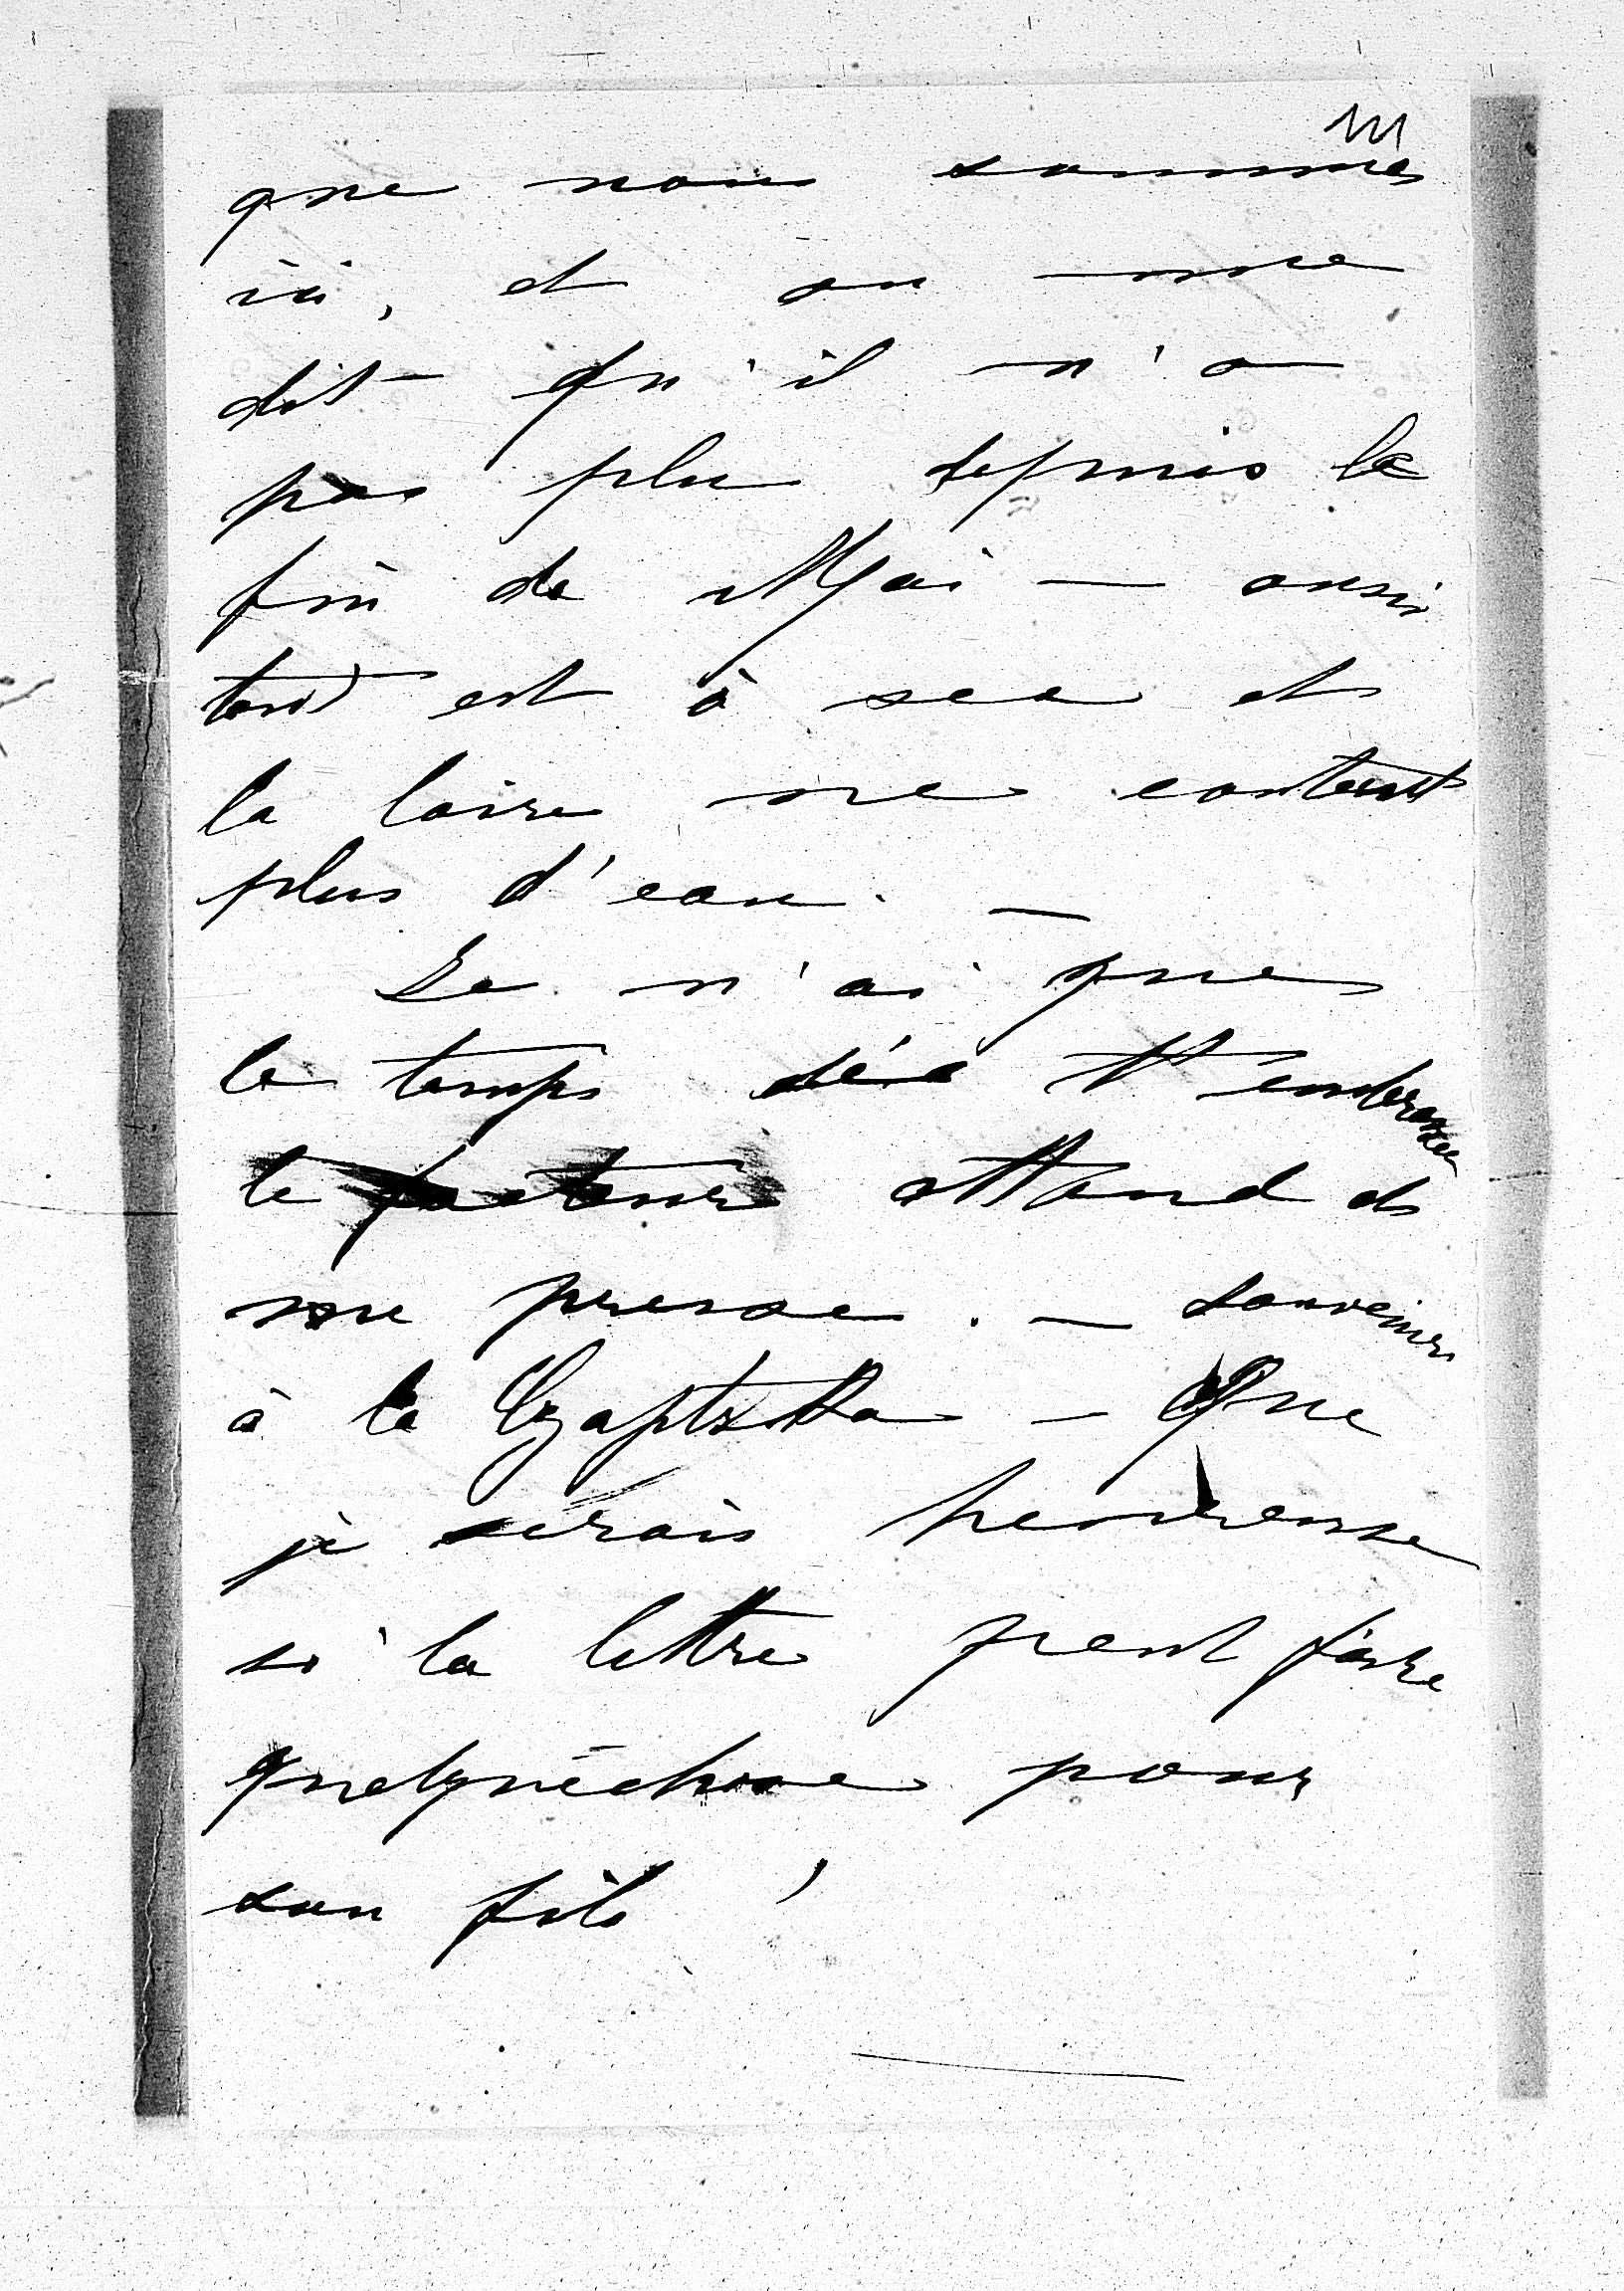 que nous sommes
ici, et on me
dit qu'il n'a
pas plu depuis la
fin de Mai — aussi
tout est à sec et
la loire ne contient
plus d'eau. —
Je n'ai que
le temps de t'embrasser
le facteur attend et
me presse. — Souvenirs
à la — Que
je serais heureuse
si la lettre peut faire
quelquechose pour
son fils